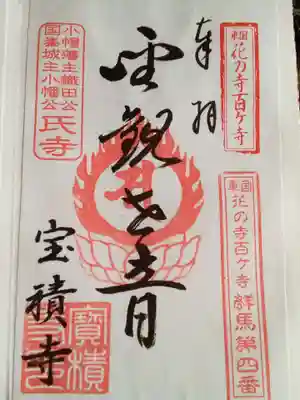 東国花の寺百ケ寺
東国花の寺百ケ寺群馬第四番
奉拝
聖観世音
小幡藩主織田公
国峯城主小幡公
氏寺
宝積寺
寶積